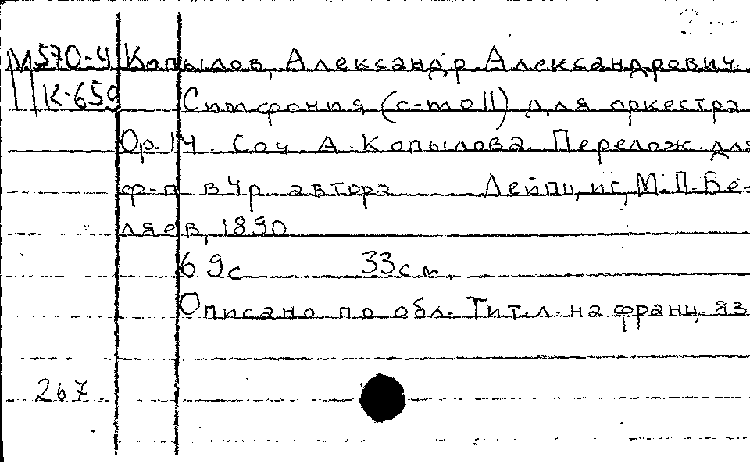 М570-4 Копылов, Александр Александрович.
К-659 Симфония (c-moll) для оркестра
Ор. 14. Соч. А. Копылова. Перелож. для
ф-п. в 4 р. автора Лейпциг, М.П. Бе-
ляев, 1890
69с 33см.
Описано по обл. Тит. л. на франц. яз
267